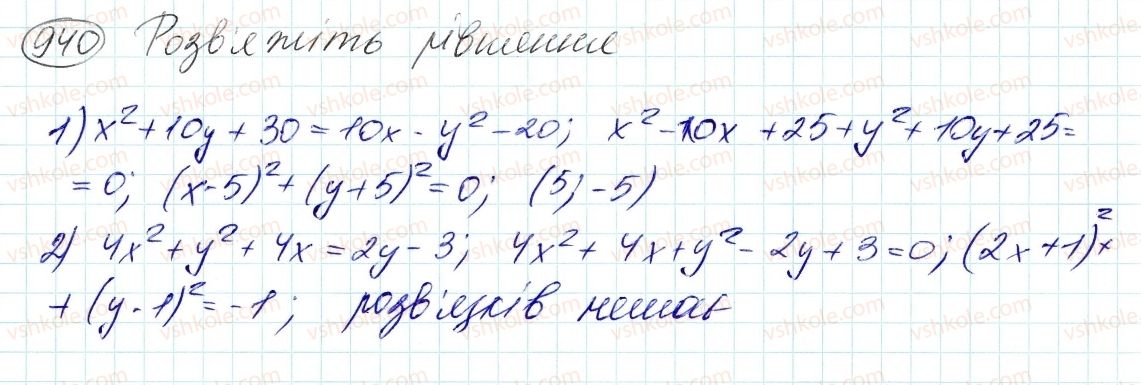 940 Розв'яжіть рівняння
1) x² + 10y + 30 = 10x - y² - 20; x² - 10x + 25 + y² + 10y + 25 =
= 0; (x - 5)² + (y + 5)² = 0; (5; -5)
2) 4x² + y² + 4x = 2y - 3; 4x² + 4x + y² - 2y + 3 = 0; (2x + 1)² +
+ (y - 1)² = -1; розв'язків немає